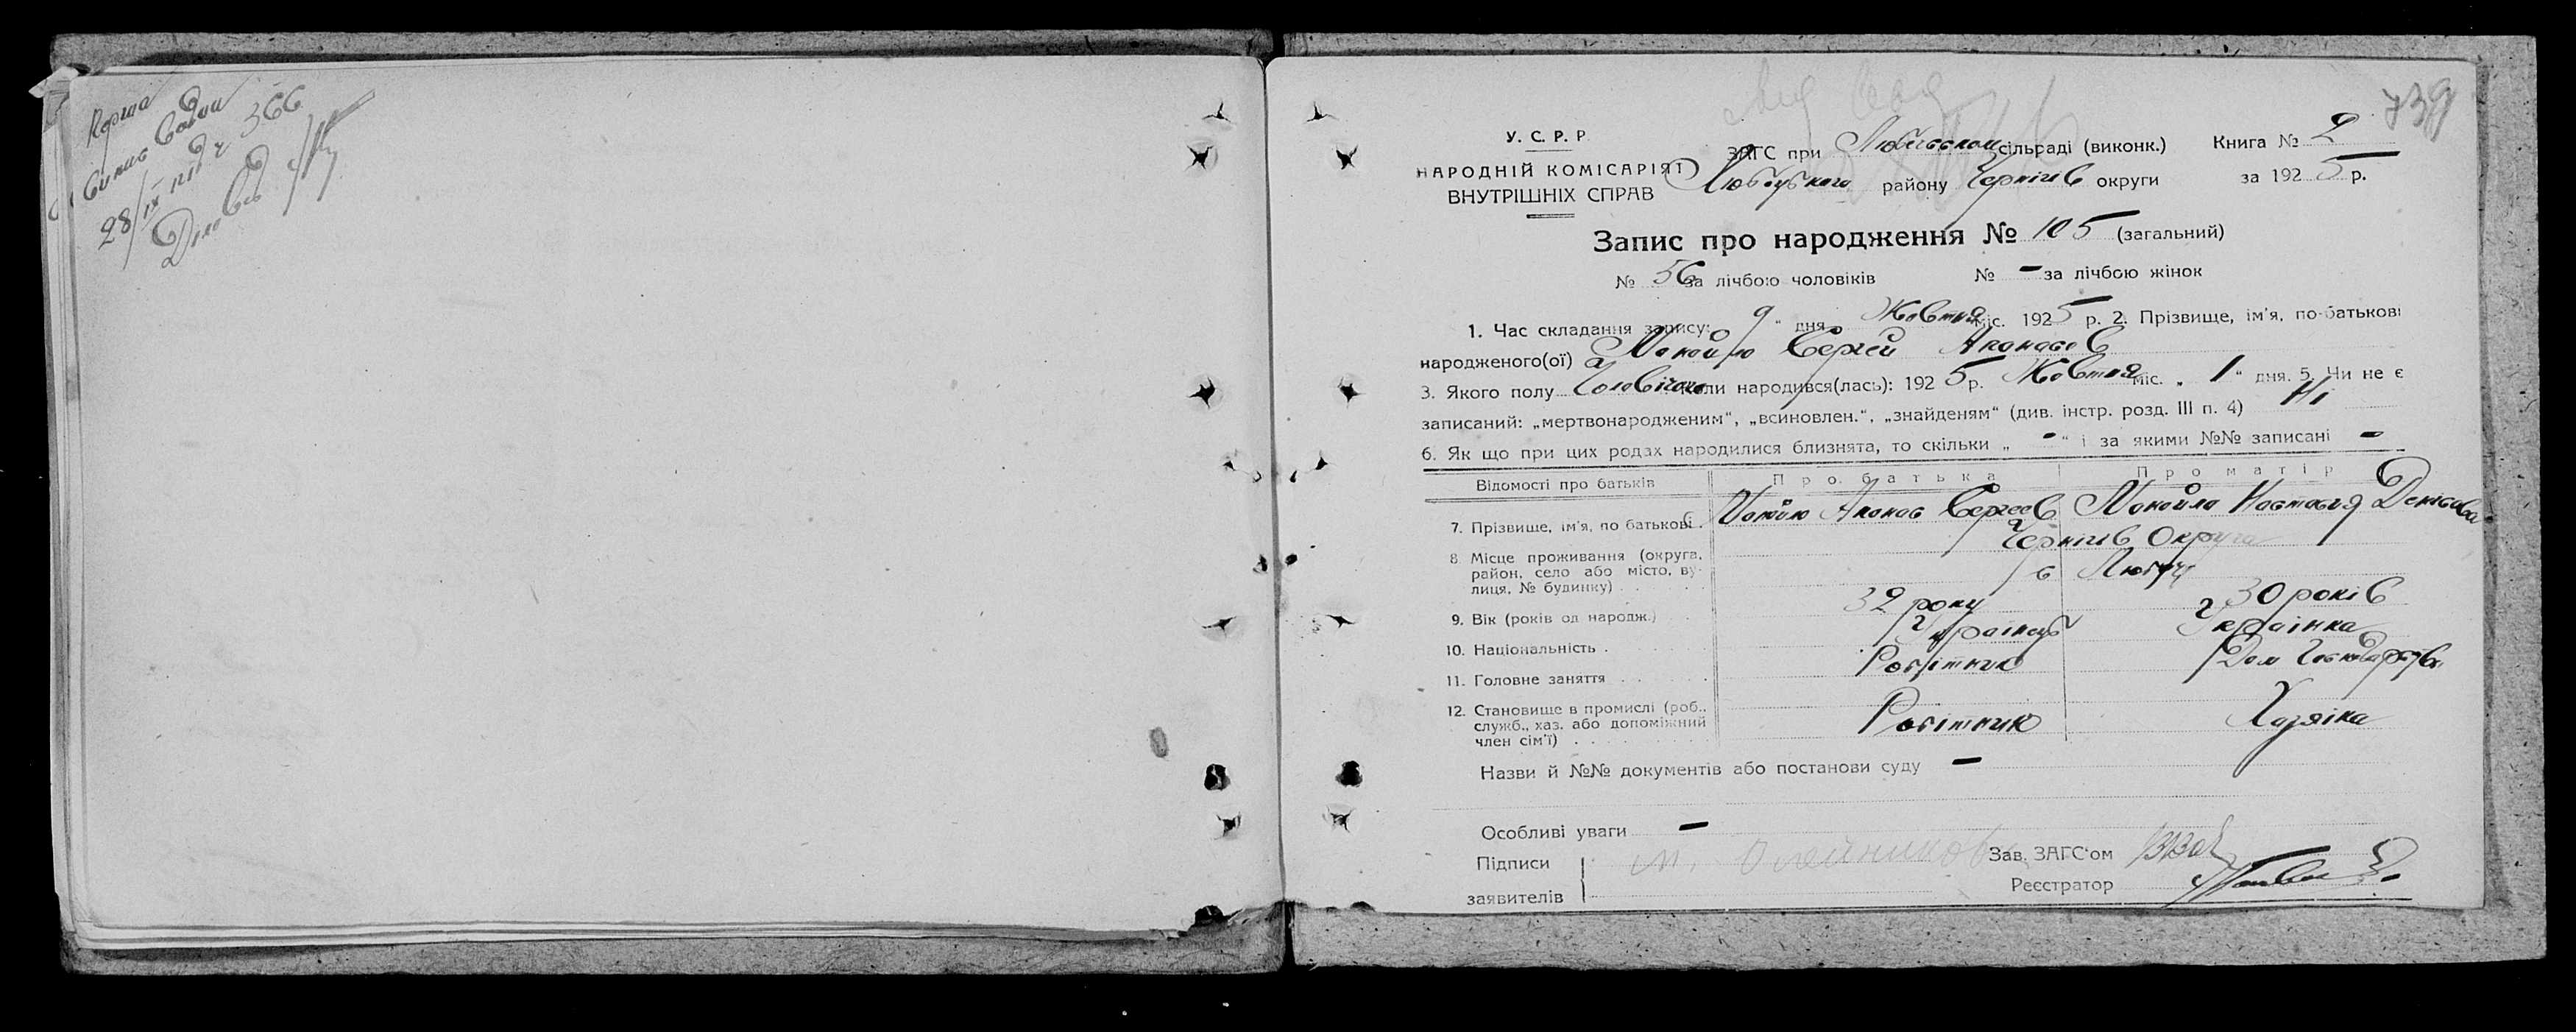 28/IX
366
739
У. С. Р. Р.
НАРОДНІЙ КОМІСАРІЯТ
ВНУТРІШНІХ СПРАВ
ЗАГС при сільраді (виконк.) Книга № 2
району Чернігів округи за 1925 р.
Запис про народження № 105 (загальний)
№ 56 за лічбою чоловіків № - за лічбою жінок
1. Час складання запису: 9 " дня Жовтня міс. 1925 р. 2. Прізвище, ім'я, по-батькові
народженого(ої) Манойло Сергей Апанасов
3. Якого полу коли народився(лась): 1925 р. Жовтня міс. „ 1 “ дня. 5. Чи не є
записаний: „мертвонародженим“, „всиновлен.“, „знайденям“ (див. інстр. розд. III п. 4) Ні
6. Як що при цих родах народилися близнята, то скільки „ - “ і за якими №№ записані -
Відомості про батьків Про батька Про матір
7. Прізвище, ім'я, по батькові. Апанас Сергеев Манойло Настасия Денісова
8. Місце проживання (округа, район, село або місто, вулиця, № будинку) Чернигів Округа
с Любеч
9. Вік (років од народж.) 32 року 30 років
10. Національність Українець Українка
11. Головне заняття Робітник Дом
12. Становище в промислі (роб., служб., хаз. або допоміжний член сім'ї) Робітник Хазяіка
Назви й №№ документів або постанови суду -
Особливі уваги -
Підписи
заявителів
Зав. ЗАГС'ом
Реєстратор